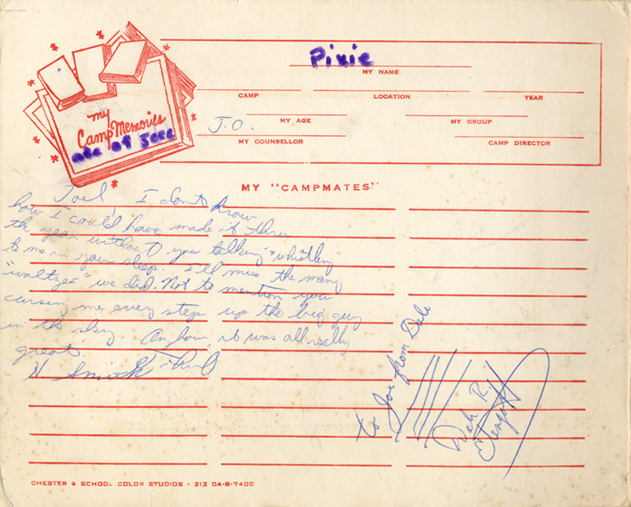 Pixie
MY NAME
CAMP LOCATION YEAR
my
Camp Memories
J.O.
MY AGE MY GROUP
MY COUNSELLOR CAMP DIRECTOR
MY "CAMPMATES"
I don't know
how I could have made it thru
the year without you talking & whistling
to me in your sleep. I'll miss the many
"waltzes" we did. Not to mention you
cursing me every step up the big guy
in the sky. it was all really
great.
to Joe from Dale
CHESTER & SCHOOL COLOR STUDIOS • 212 DA-8-7400